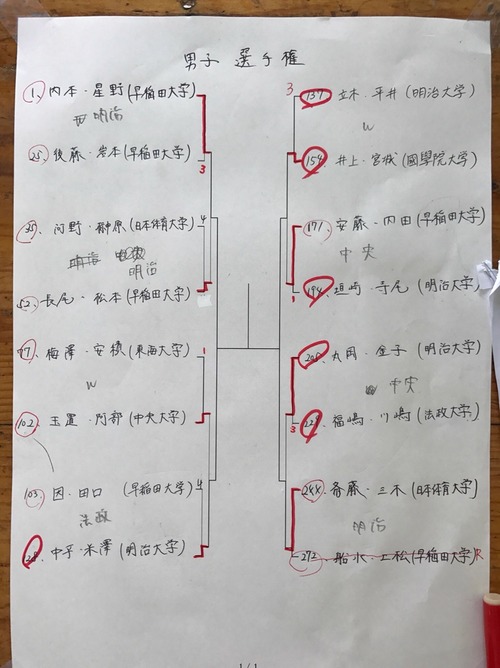 男子 選手権
1. 内本・星野 (早稲田大学)
明治
25. 後藤・岩本 (早稲田大学)
3
35. 河野・榊原 (日本体育大学) 4
明治
52. 長尾・松本 (早稲田大学)
77. 梅澤・安積 (東海大学) 1
W
102. 玉置・阿部 (中央大学)
103. 因・田口 (早稲田大学) 4
法政
中平・米澤 (明治大学)
3 137. 立木・平井 (明治大学)
W
154. 井上・宮城 (國學院大学)
171 安藤・内田 (早稲田大学)
中央
194. 垣崎・寺尾 (明治大学)
1
丸岡・金子 (明治大学)
中央
福嶋・川嶋 (法政大学)
3
244. 斉藤・三木 (日本体育大学)
明治
272 船水・上松 (早稲田大学) R
1/1